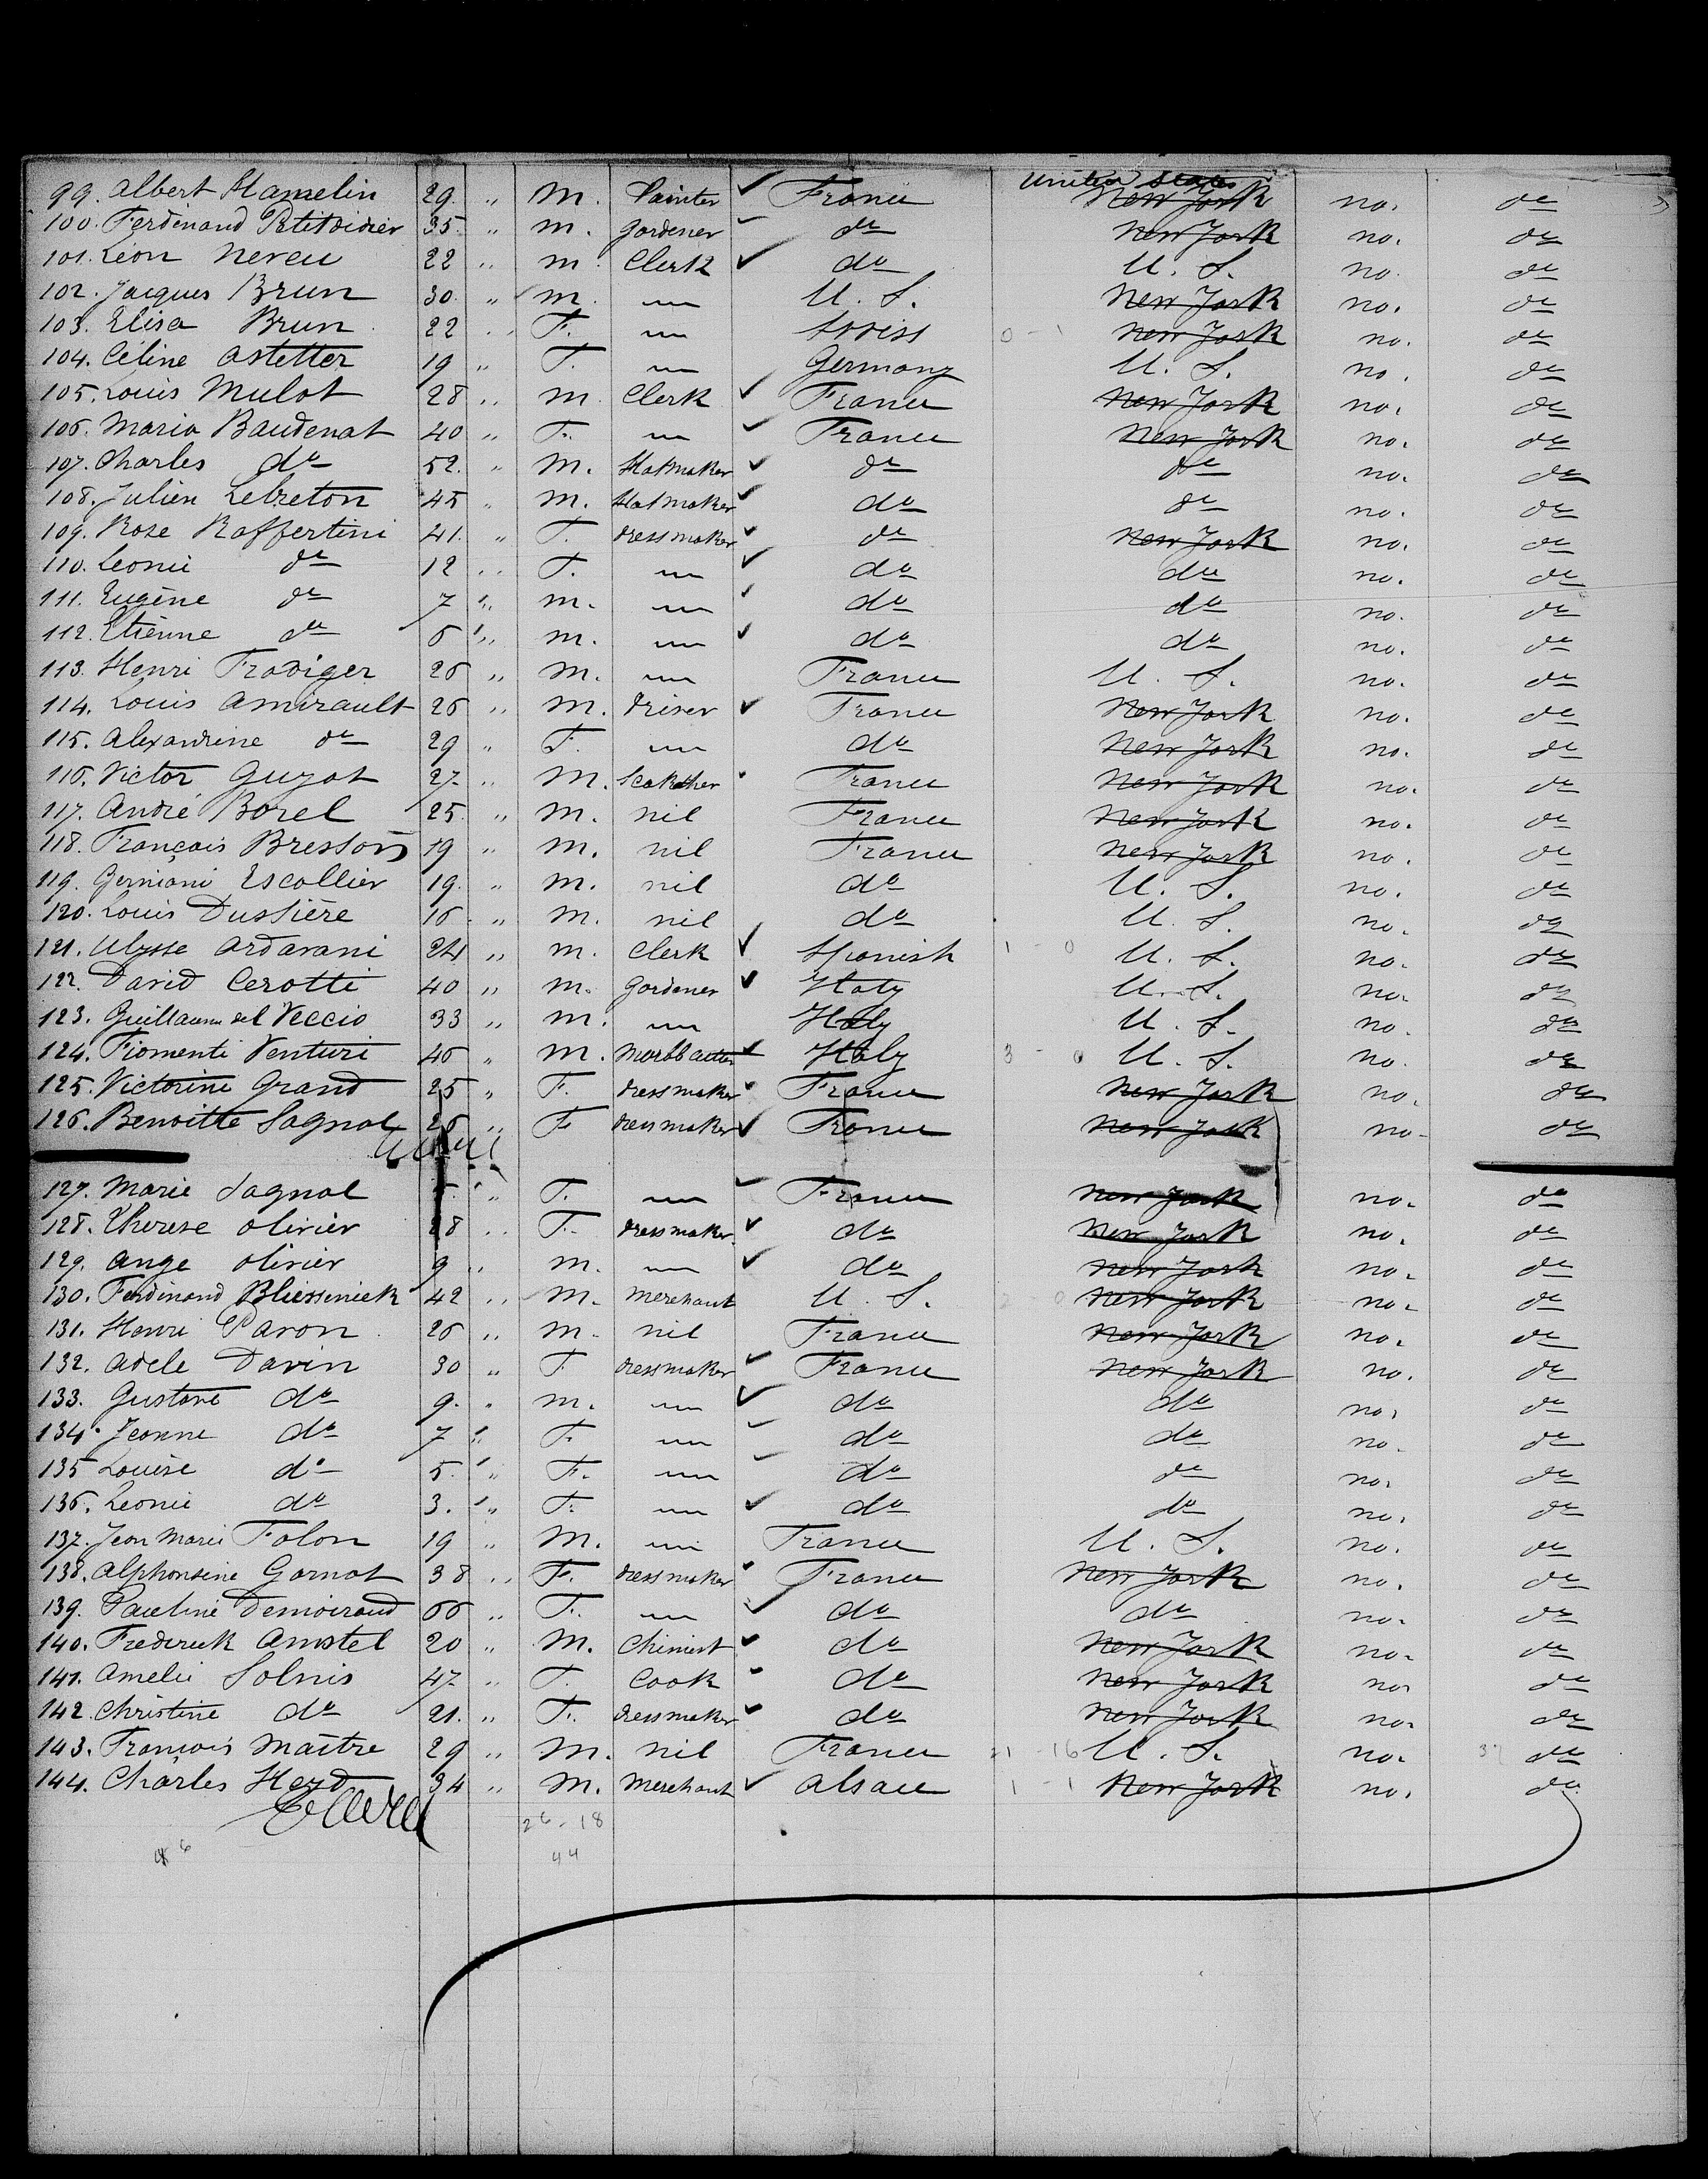 United States
99. Albert Hamelin 29. " M. Painter ✓ France New York no. do
100. Ferdinand Petitdidier 35. " M. Gardener do New York no. do
101. Léon Neveu 22 " M. Clerk ✓ do U. S. no. do
102. Jacques Brun 30. " M. — U. S. New York no. do
103. Elisa Brun 22 " F. — Swiss 0 - 1 New York no. do
104. Céline Astetter 19 " F. — Germany U. S. no. do
105. Louis Mulot 28 " M. Clerk ✓ France New York no. do
106. Maria Baudenat 40 " F. — ✓ France New York no. do
107. Charles do 52. " M. Hatmaker ✓ do do no. do
108. Julien Lebreton 45 " M. Hatmaker ✓ do do no. do
109. Rose Raffertini 41. " F. dressmaker ✓ do New York no. do
110. Leonie do 12 " F. — ✓ do do no. do
111. Eugène do 7 " M. — ✓ do do no. do
112. Etienne do 6 " M. — ✓ do do no. do
113. Henri Frodiger 26 " M. — France U. S. no. do
114. Louis Amirault 26 " M. driver ✓ France New York no. do
115. Alexandrine do 29 " F. — do New York no. do
116. Victor Guyot 27. " M. France New York no. do
117. André Borel 25. " M. nil France New York no. do
118. François Bresson 19 " M. nil France New York no. do
119. Escollier 19. " M. nil do U. S. no. do
120. Louis Dussière 16 " M. nil do U. S. no. do
121. Ulysse Ardavani 24 " M. Clerk ✓ Spanish 1 - 0 U. S. no. do
122. David Cerotti 40 " M. Gardener ✓ Italy U. S. no. do
123. Guillaume del Veccio 33 " M. — Italy U. S. no. do
124. Fiomenti Venturi 46 " M. Marbl cutter ✓ Italy 3 - 0 U. S. no. do
125. Victorine Grand 25 " F. dressmaker ✓ France New York no. do
126. Benoitte Sagnol 26 " F dressmaker ✓ France New York no. do
127. Marie Sagnol " F. — ✓ France New York no. do
128. Therese Olivier 28 " F. dressmaker ✓ do New York no. do
129. Ange Olivier 9 " M. — ✓ do New York no. do
130. Ferdinand Bliesseniek 42 " M. Merchant U. S. 2 0 New York no. do
131. Henri Paron 26 " M. nil France New York no. do
132. Adele Davin 30 " F. dressmaker ✓ France New York no. do
133. Gustave do 9. " M. — ✓ do do no. do
134. Jeanne do 7 " F. — ✓ do do no. do
135 Louise do 5. " F. — ✓ do do no. do
136. Leonie do 3. " F. — ✓ do do no. do
137. Jean Marie Folon 19 " M. — France U. S. no. do
138. Alphonsine Garnot 38 " F. dressmaker ✓ France New York no. do
139. Pauline Demoiraud 66 " F. — ✓ do do no. do
140. Frederick Amstel 20 " M. Chimist ✓ do New York no. do
141. Amelie Solnis 47 " F. Cook ✓ do New York no. do
142. Christine do 21. " F. dressmaker ✓ do New York no. do
143. François Maître 29 " M. nil France 21 - 16 U. S. no. 37 do
144. Charles Heyd 34 " M. Merchant ✓ Alsace 1 - 1 New York no. do
26 - 18
44